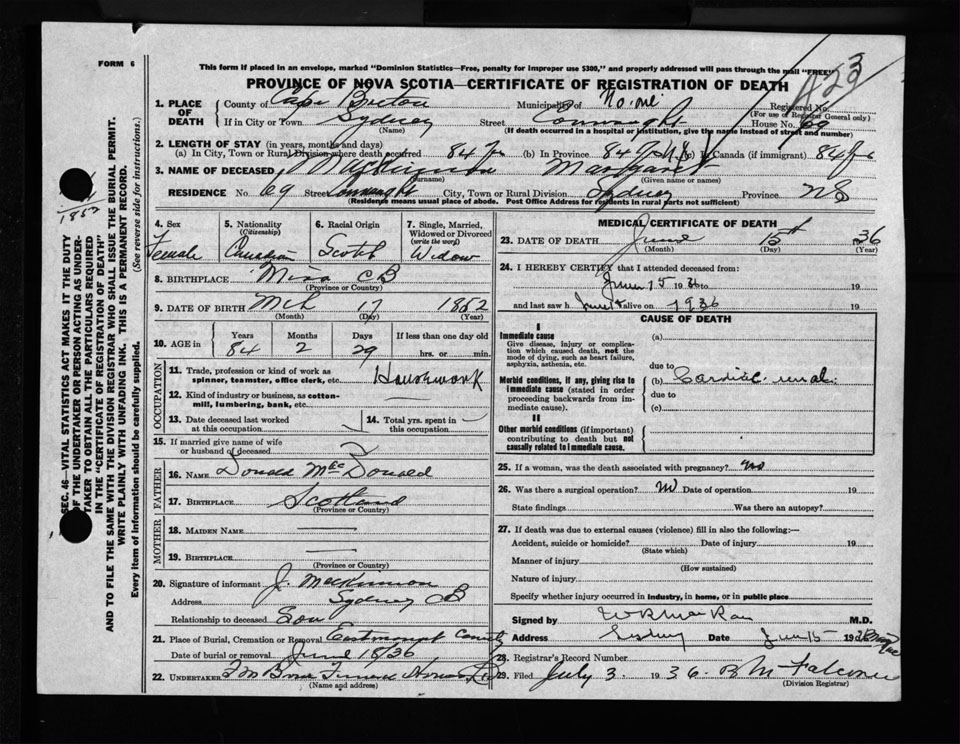 FORM 6
This form if placed in an envelope, marked "Dominion Statistics—Free, penalty for improper use $300," and properly addressed will pass through the mail "FREE"
PROVINCE OF NOVA SCOTIA—CERTIFICATE OF REGISTRATION OF DEATH
423
1. PLACE OF DEATH
County of Cape Breton Municipality of No. one Registered No.
(For use of Registrar General only)
If in City or Town Sydney Street House No. 69
(Name) (If death occurred in a hospital or institution, give the name instead of street and number)
2. LENGTH OF STAY (in years, months and days)
(a) In City, Town or Rural Division where death occurred 84 (b) In Province 84 (c) In Canada (if immigrant) 84
3. NAME OF DECEASED MacKinnon Margaret
(Surname) (Given name or names)
RESIDENCE No. 69 Street City, Town or Rural Division Sydney Province NS
(Residence means usual place of abode. Post Office Address for residents in rural parts not sufficient)
4. Sex 5. Nationality (Citizenship) 6. Racial Origin 7. Single, Married, Widowed or Divorced (write the word)
Female Canadian Scotch Widow
8. BIRTHPLACE Mira CB
(Province or Country)
9. DATE OF BIRTH Mch 17 1852
(Month) (Day) (Year)
10. AGE in Years Months Days If less than one day old
84 2 29 hrs. or min.
OCCUPATION
11. Trade, profession or kind of work as spinner, teamster, office clerk, etc. Housework
12. Kind of industry or business, as cotton-mill, lumbering, bank, etc.
13. Date deceased last worked at this occupation
14. Total yrs. spent in this occupation
15. If married give name of wife or husband of deceased
FATHER
16. NAME Donald MacDonald
17. BIRTHPLACE Scotland
(Province or Country)
MOTHER
18. MAIDEN NAME
19. BIRTHPLACE
(Province or Country)
20. Signature of informant J. MacKinnon
Address Sydney CB
Relationship to deceased Son
21. Place of Burial, Cremation or Removal Eastmount
Date of burial or removal June 18/36
22. UNDERTAKER
(Name and address)
MEDICAL CERTIFICATE OF DEATH
23. DATE OF DEATH June 15th 1936
(Month) (Day) (Year)
24. I HEREBY CERTIFY that I attended deceased from:
June 15 1936 to 19
and last saw h alive on 1936 19
CAUSE OF DEATH
I
Immediate cause
Give disease, injury or complication which caused death, not the mode of dying, such as heart failure, asphyxia, asthenia, etc.
(a)
due to
Morbid conditions, if any, giving rise to immediate cause (stated in order proceeding backwards from immediate cause).
(b) Cardiac renal
due to
(c)
II
Other morbid conditions (if important) contributing to death but not causally related to immediate cause.
25. If a woman, was the death associated with pregnancy? no
26. Was there a surgical operation? no Date of operation 19
State findings Was there an autopsy?
27. If death was due to external causes (violence) fill in also the following:—
Accident, suicide or homicide? Date of injury 19
(State which)
Manner of injury
(How sustained)
Nature of injury
Specify whether injury occurred in industry, in home, or in public place
Signed by M.D.
Address Sydney Date June 15 19
28. Registrar's Record Number
29. Filed July 3. 1936.
(Division Registrar)
1852
SEC. 46—VITAL STATISTICS ACT MAKES IT THE DUTY
OF THE UNDERTAKER OR PERSON ACTING AS UNDER-
TAKER TO OBTAIN ALL THE PARTICULARS REQUIRED
IN THE "CERTIFICATE OF REGISTRATION OF DEATH"
AND TO FILE THE SAME WITH THE DIVISION REGISTRAR WHO SHALL ISSUE THE BURIAL PERMIT.
WRITE PLAINLY WITH UNFADING INK. THIS IS A PERMANENT RECORD.
Every item of information should be carefully supplied. (See reverse side for instructions.)